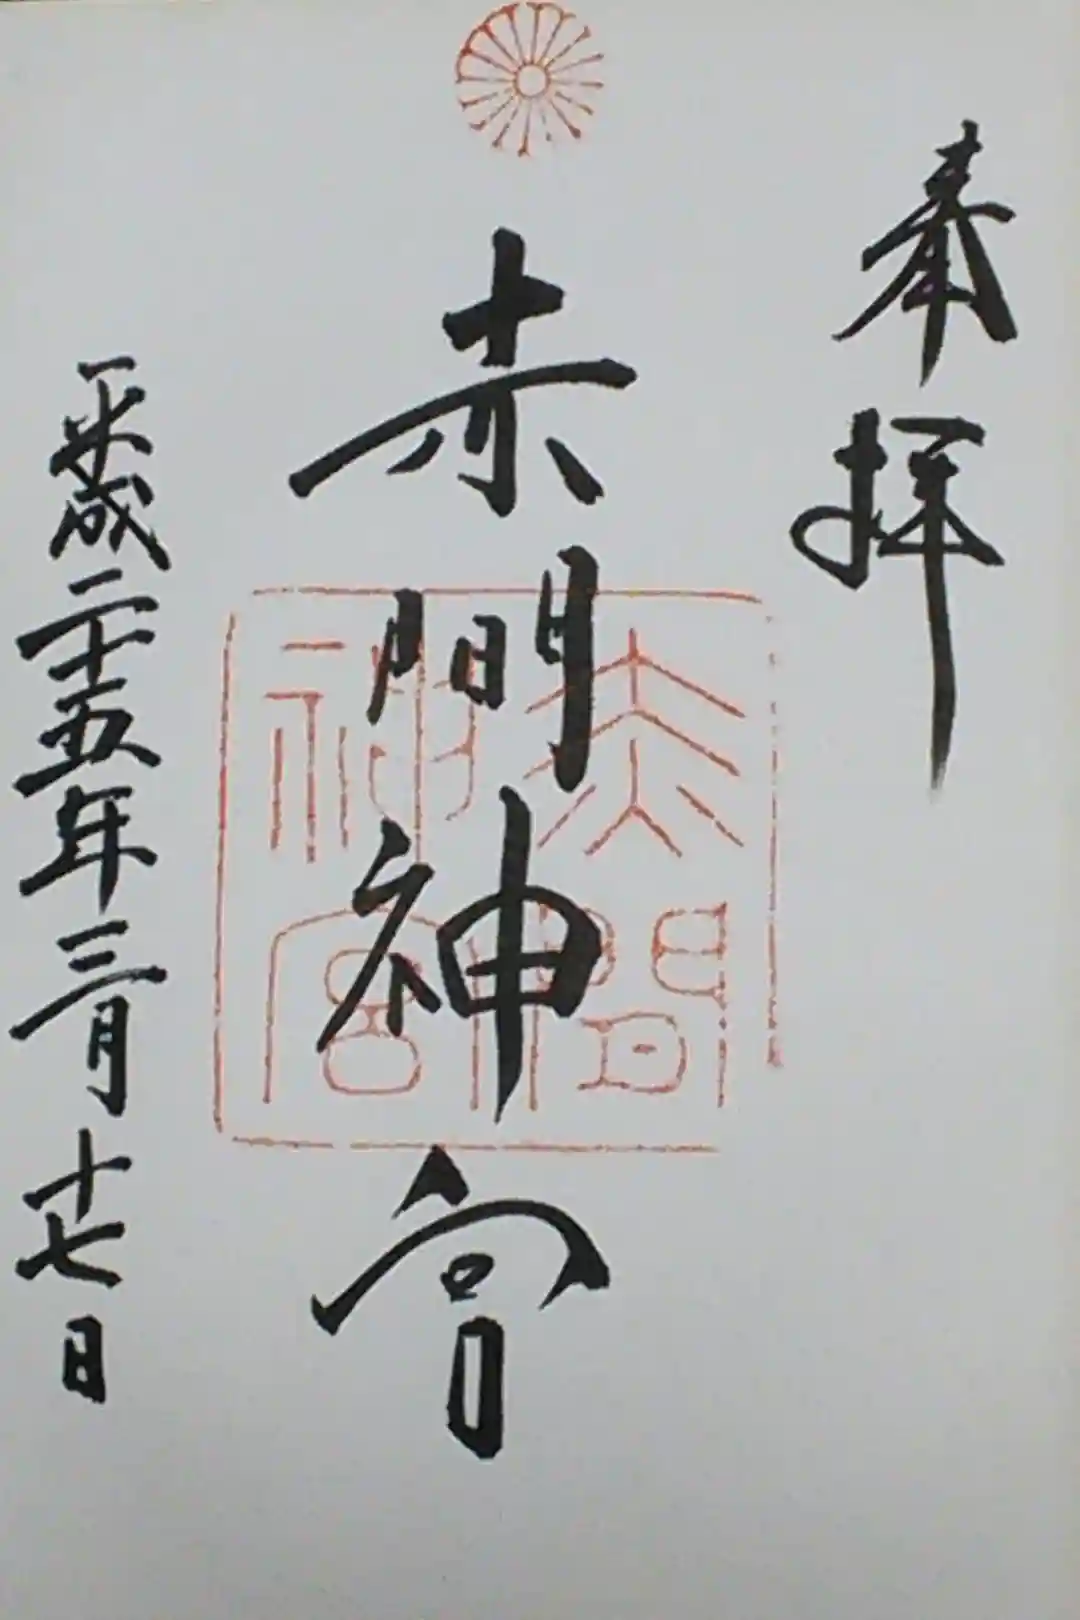 奉拝
赤間神宮
赤間
神宮
平成二十五年三月十七日